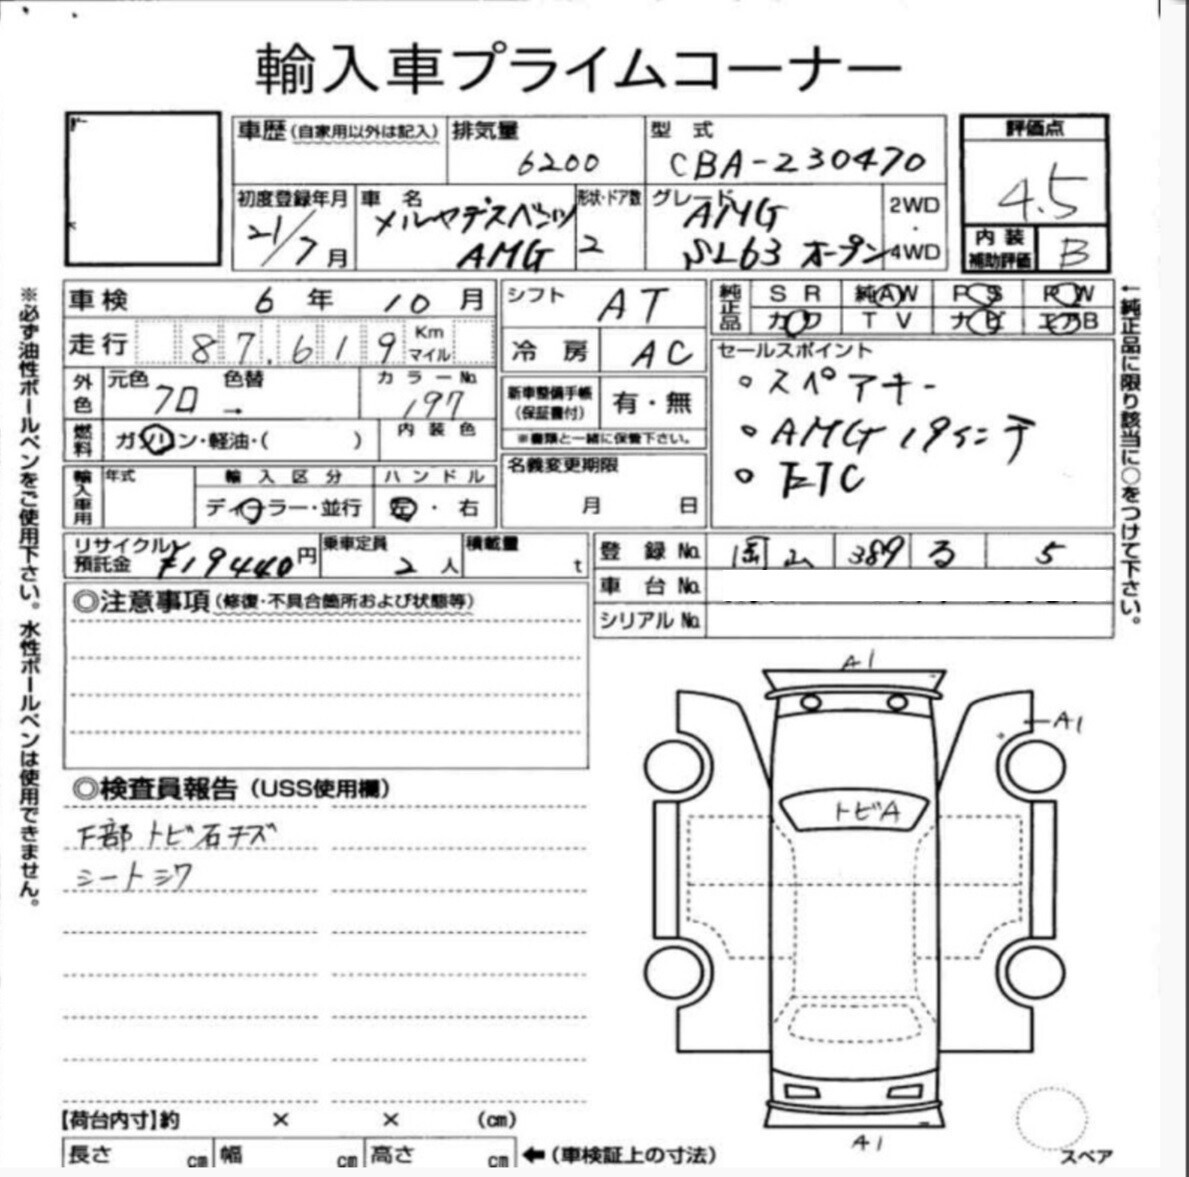 輸入車プライムコーナー
車歴(自家用以外は記入) 排気量 6200 型式 CBA-230470 評価点 4.5
初度登録年月 21/7月 車名 メルセデスベンツ AMG 形状・ドア数 2 グレード AMG SL63 オープン 2WD・4WD 内装補助評価 B
車検 6年10月 シフト AT 純正品 SR 純AW PS PW
走行 87,619 Km マイル 冷房 AC カワ TV ナビ エアB
外色 元色 クロ 色替 → カラーNo. 197 新車整備手帳(保証書付) 有・無 セールスポイント
燃料 ガソリン・軽油・( ) 内装色 ※書類と一緒に保管下さい。
。スペアキー
。AMG 19インチ
。ETC
輸入車用 年式 輸入区分 ディーラー・並行 ハンドル 左・右 名義変更期限 月 日
リサイクル預託金 ¥19440円 乗車定員 2人 積載量 t 登録No. 岡山 389 る 5
車台No.
シリアルNo.
◎注意事項(修復・不具合箇所および状態等)
◎検査員報告(USS使用欄)
下部トビ石キズ
シートシワ
A1
A1
トビA
A1
スペア
【荷台内寸】約 × × (cm)
長さ cm 幅 cm 高さ cm ←(車検証上の寸法)
※必ず油性ボールペンをご使用下さい。水性ボールペンは使用できません。
←純正品に限り該当に○をつけて下さい。